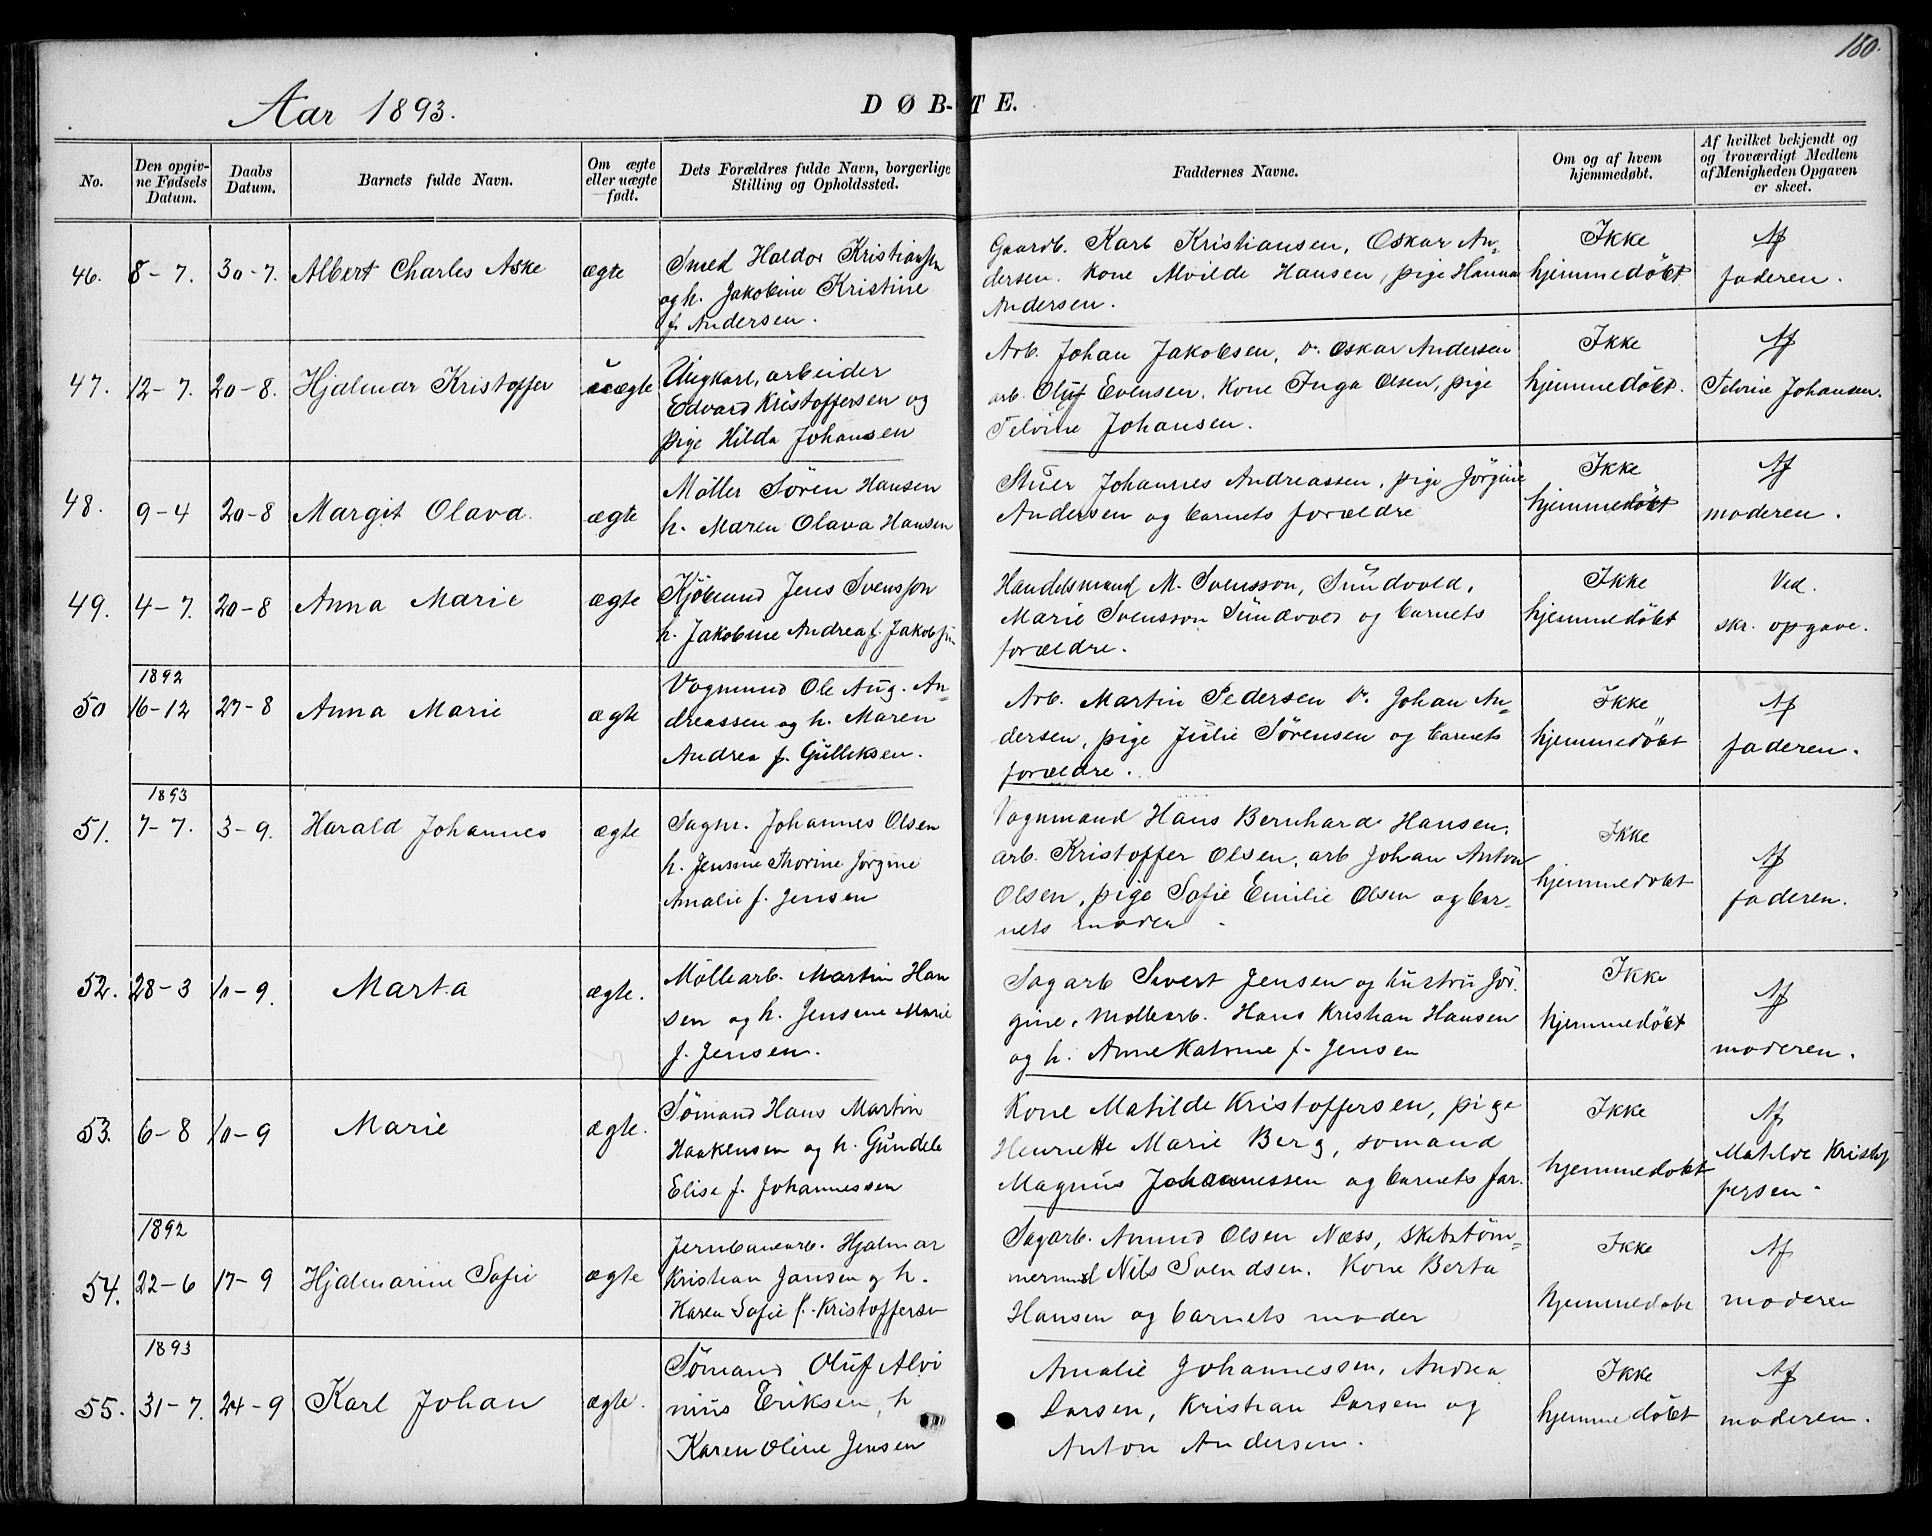 180.
Aar 1893.
DØB-TE.
No.
Den opgiv-
ne Fødsels
Datum.
Daabs
Datum.
Barnets fulde Navn.
Om ægte
eller uægte
født.
Dets Forældres fulde Navn, borgerlige
Stilling og Opholdssted.
Faddernes Navne.
Om og af hvem
hjemmedøbt.
Af hvilket bekjendt og
og troværdigt Medlem
af Menigheden Opgaven
er skeet.
46. 8-7. 30-7. Albert Charles Aske ægte
Smed Haldor Kristiansen
og h. Jakobine Kristine
f. Andersen.
Gaardb. Karl Kristiansen, Oskar An-
dersen. Kone Alvilde Hansen, pige Hanna
Andersen.
Ikke
hjemmedöbt
Af
faderen.
47. 12-7. 20-8. Hjalmar Kristoffer uægte
Ungkarl, arbeider
Edvard Kristoffersen og
pige Hilda Johansen
Arb. Johan Jakobsen, do. Oskar Andersen
arb. Oluf Evensen. Kone Inga Olsen, pige
Telvine Johansen.
Ikke
hjemmedöbt.
Af
Telvine Johansen.
48. 9-4 20-8 Margit Olava. ægte
Møller Sören Hansen
h. Maren Olava Hansen
Stuer Johannes Andreassen, pige Jörgine
Andersen og barnets forældre
Ikke
hjemmedöbt
Af
moderen.
49. 4-7. 20-8 Anna Marie ægte
Kjöbmd Jens Svensson
h. Jakobine Andrea f. Jakobsen
Handelsmand M. Svensson, Sundvold,
Marie Svensson Sundvold og barnets
forældre.
Ikke
hjemmedöbt
Ved.
skr. opgave.
1892
50 16-12 27-8 Anna Marie ægte
Vognmand Ole Aug. An-
dreassen og h. Maren
Andrea f. Gulliksen.
Arb. Martin Pedersen do. Johan An-
dersen, pige Julie Sörensen og barnets
forældre.
Ikke
hjemmedöbt
Af
faderen.
1893
51. 7-7. 3-9. Harald Johannes ægte
Sagm. Johannes Olsen
h. Jensine Thorine Jørgine
Amalie f. Jensen
Vognmand Hans Bernhard Hansen,
arb. Kristoffer Olsen, arb Johan Anton
Olsen, pige Sofie Emilie Olsen og bar-
nets moder
Ikke
hjemmedøbt
Af
faderen.
52. 28-3 10-9. Marta ægte.
Möllearb. Martin Han
sen og h. Jensine Marie
f. Jensen.
Sagarb Sivert Jensen og hustru Jör-
gine, Møllearb. Hans Kristian Hansen
og h. Anne Katrine f. Jensen
Ikke
hjemmedöbt
Af
moderen.
53. 6-8 10-9 Marie ægte.
Sömand Hans Martin
Haakensen og h. Gundele
Elise f. Johannessen
Kone Matilde Kristoffersen, pige
Henriette Marie Berg, sømand
Magnus Johannessen og barnets far.
Ikke
hjemmedøbt
Af
Matilde Kristof
fersen.
1892
54. 22-6 17-9 Hjalmarine Sofie ægte
Jernbanearb. Hjalmar
Kristian Jansen og h.
Karen Sofie f. Kristoffersen
Sagarb. Amund Olsen Næss, skibstöm-
mermd Nils Svendsen. Kone Berta
Hansen og barnets moder
Ikke
hjemmedøbt
Af
moderen
1893
55. 31-7. 24-9 Karl Johan ægte.
Sömand Oluf Alvi
nius Eriksen, h
Karen Oline Jensen
Amalie Johannessen, Andrea
Larsen, Kristian Larsen og
Anton Andersen.
Ikke
hjemmedöbt
Af
moderen.